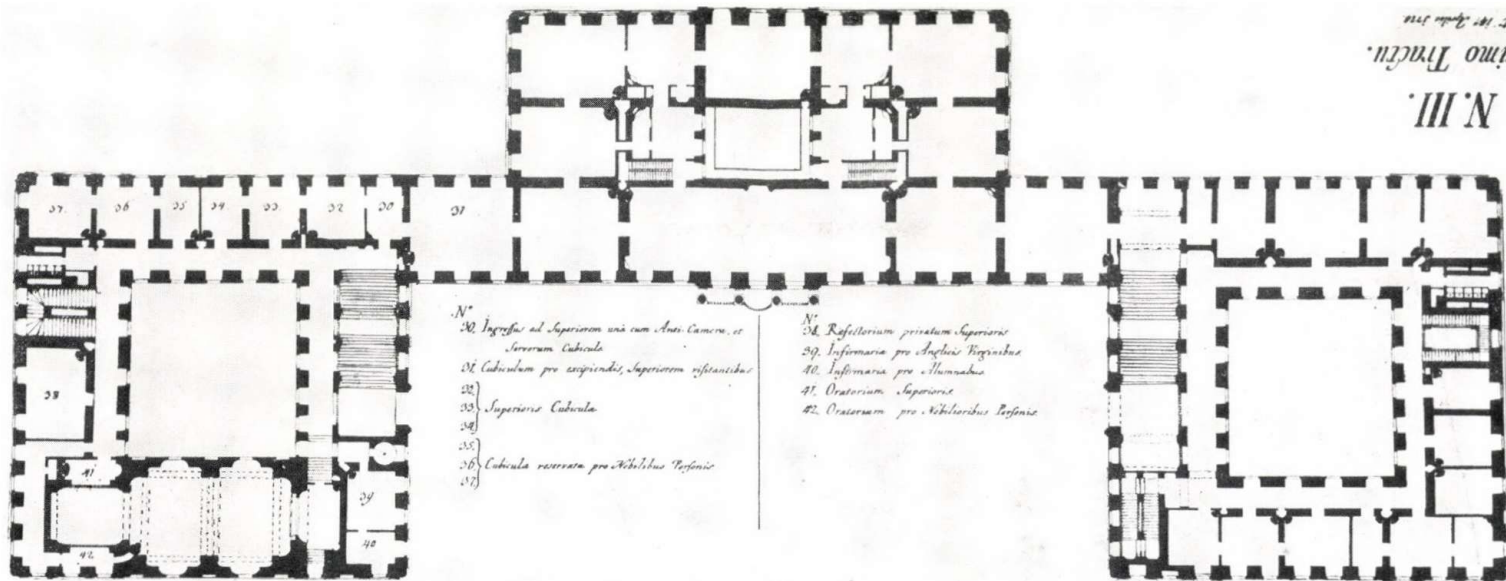 N. III.
37.
36
35
34
33
32
30
31
38
41
42
39
40
N°
30. Ingressus ad Superiorem unà cum Anti-Camera, et
Servorum Cubicula
31. Cubiculum pro excipiendis, Superiorem visitantibus
32.
33. Superioris Cubicula
34.
35.
36. Cubicula reservata pro Nobilibus Personis
37.
N°
38. Refectorium privatum Superioris
39. Infirmaria pro Anglicis Virginibus
40. Infirmaria pro Alumnabus
41. Oratorium Superioris
42. Oratorium pro Nobilioribus Personis